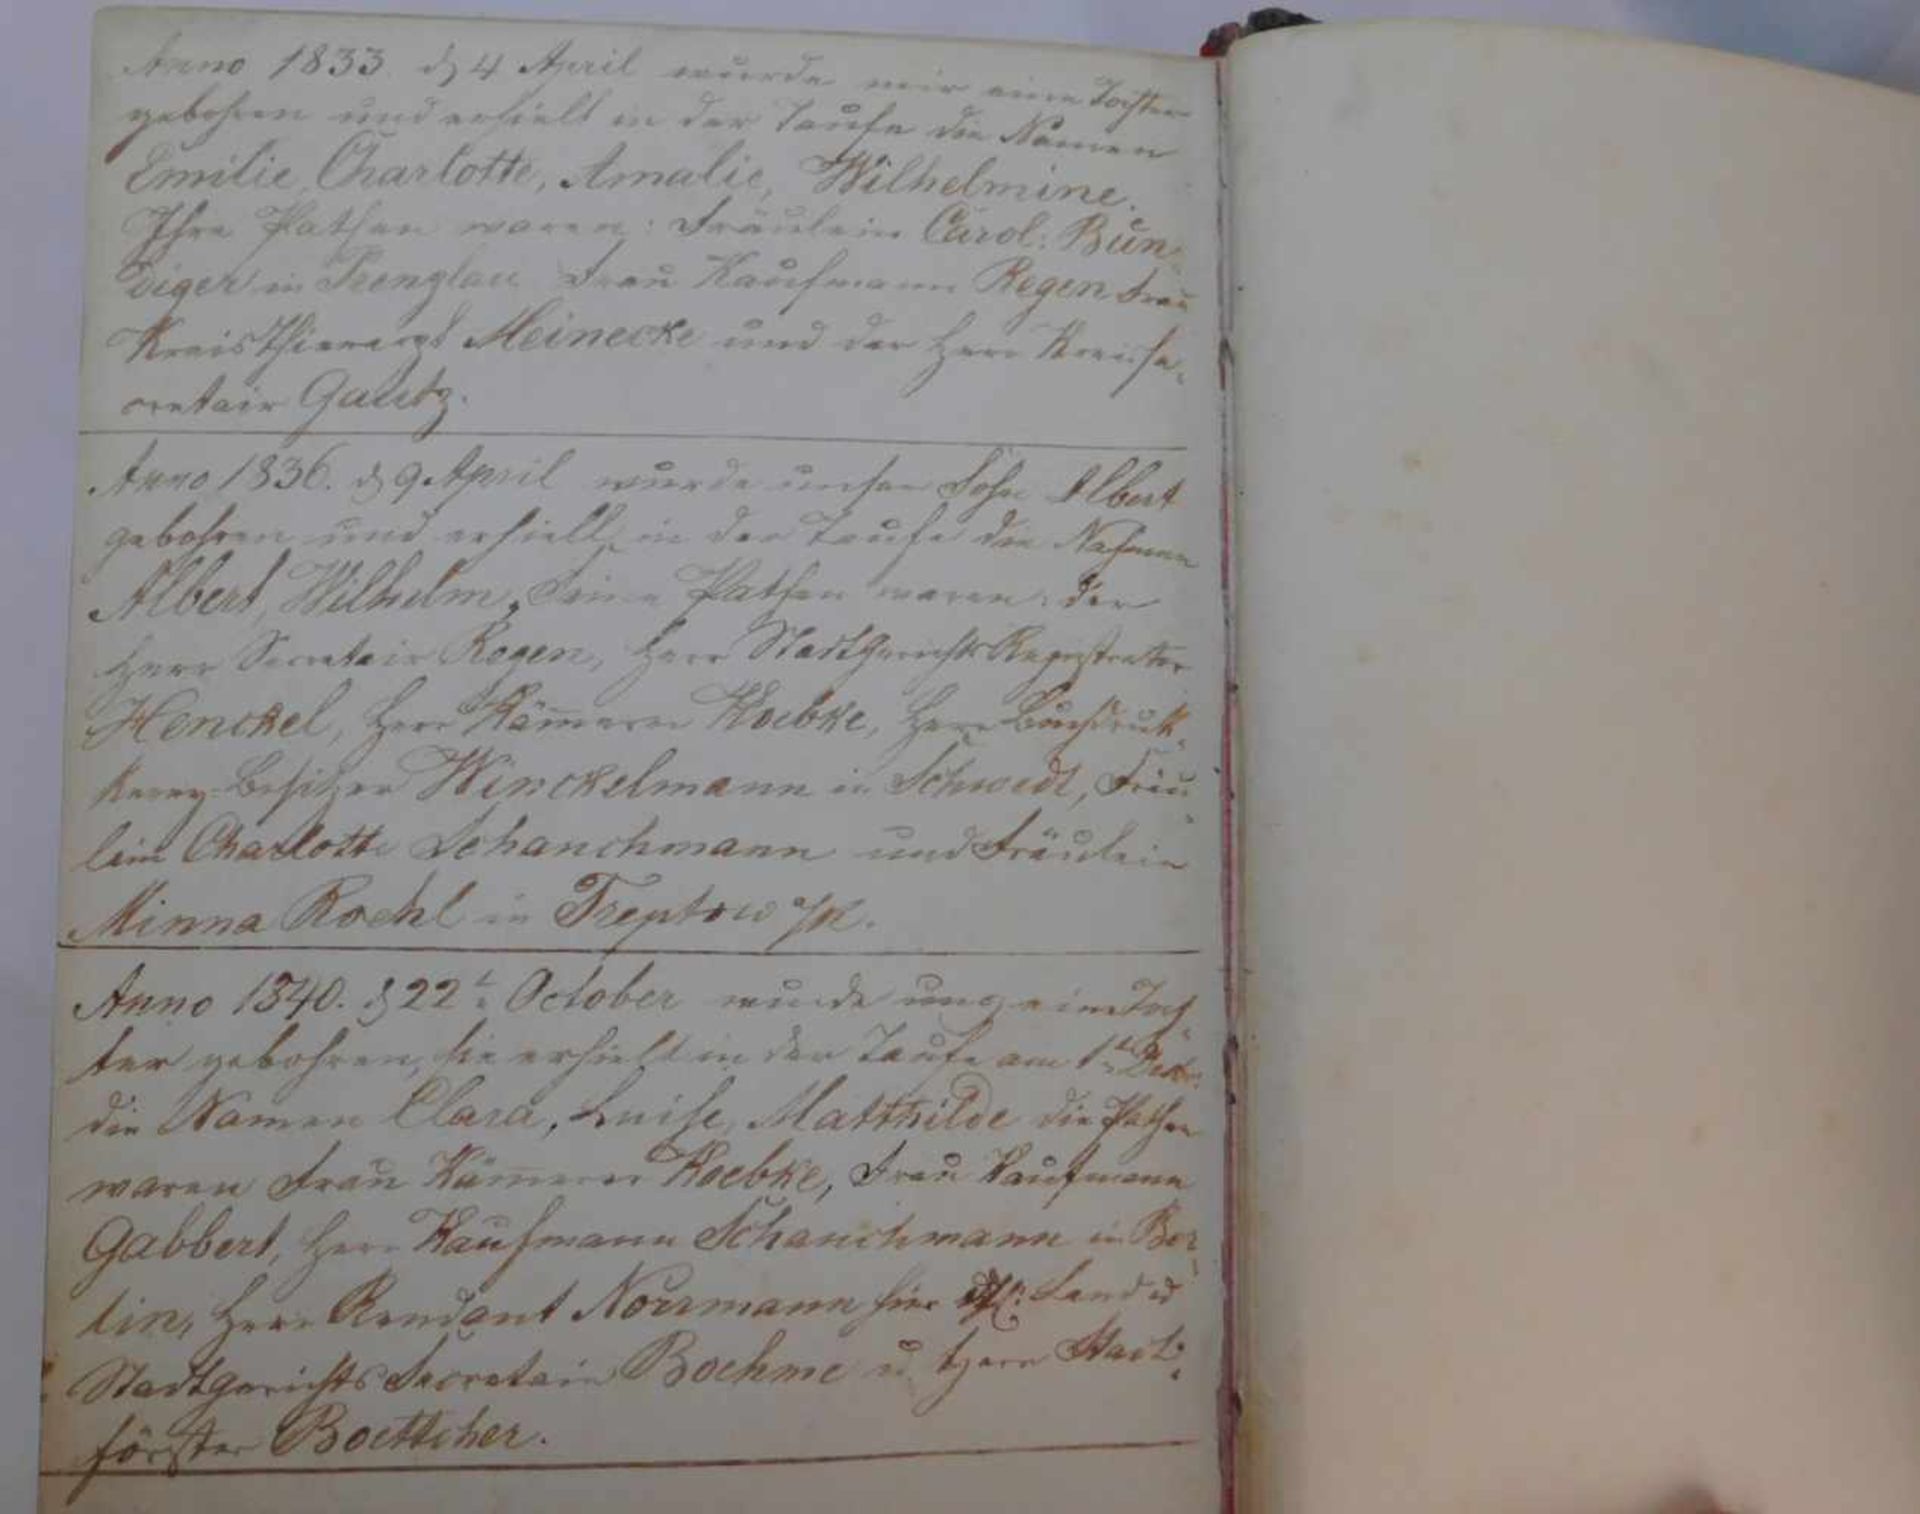 Anno 1833 d 4 April wurde mir eine Tochter
gebohren und erhielt in der Taufe die Namen
Emilie, Charlotte, Amalie, Wilhelmine.
Ihre Pathen waren: Fräulein Carol: Bün-
diger in Prenzlau Frau Kaufmann Regen Frau
Kreisthierarzt Meinecke und der Herr Kreisse-
cretair Gautz.
Anno 1836. d 9 April wurde unser Sohn Albert
gebohren und erhielt in der Taufe die Nahmen
Albert, Wilhelm, Seine Pathen waren: der
Herr Secretair Regen, Herr Stadtgerichts Registrator
Henckel, Herr Käm̄erer Koebke, Herr Buchdruk-
kerey-Besitzer Winckelmann in Schwedt, Fräu-
lein Charlotte Schanchmann und Fräulein
Minna Roehl in Treptow a/R.
Anno 1840. d 22t October wurde uns eine Toch-
ter gebohren, sie erhielt in der Taufe am 1t Decbr.
die Namen Clara, Luise, Matthilde die Pathen
waren Frau Käm̄erer Koebke, Frau Kaufmann
Gabbert, Herr Kaufmann Schanchmann in Ber-
lin, Herr Rendant Norrmann hier Land u
Stadtgerichts Secretair Boehme u. Herr Stadt-
förster Boettcher.